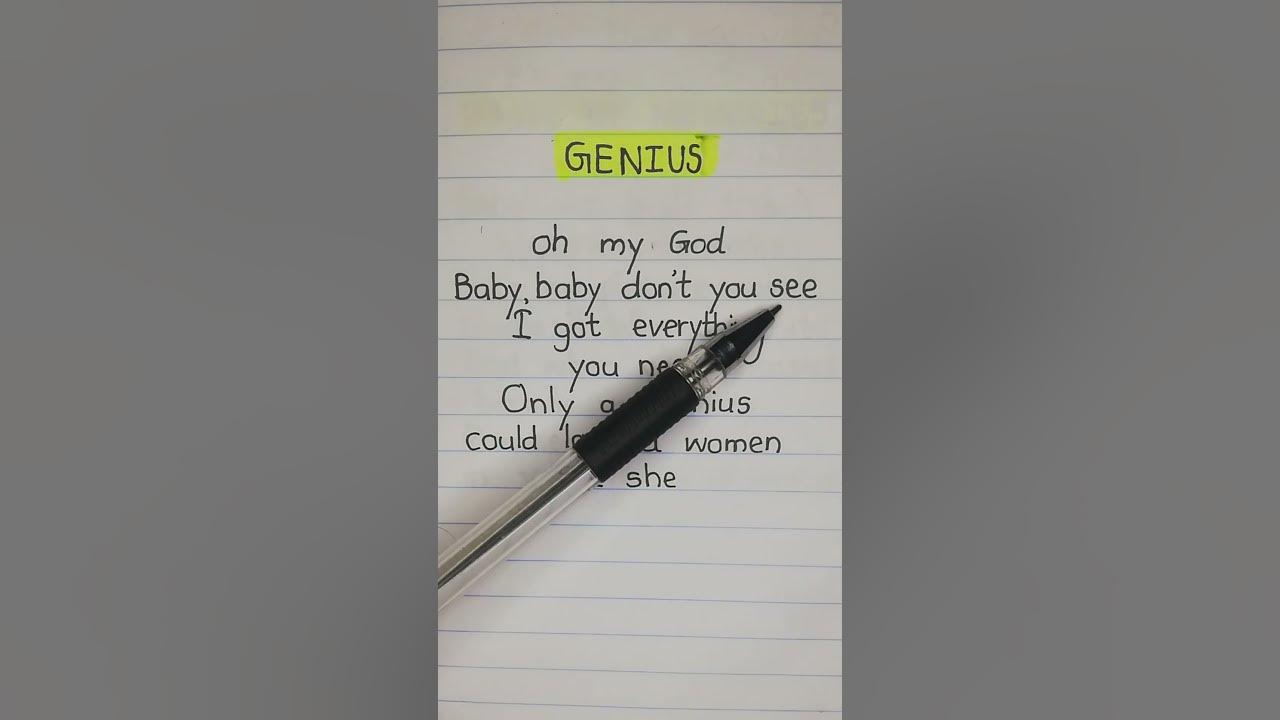 GENIUS
oh my God
Baby, baby don't you see
I got everything
you need
Only a genius
could women
she